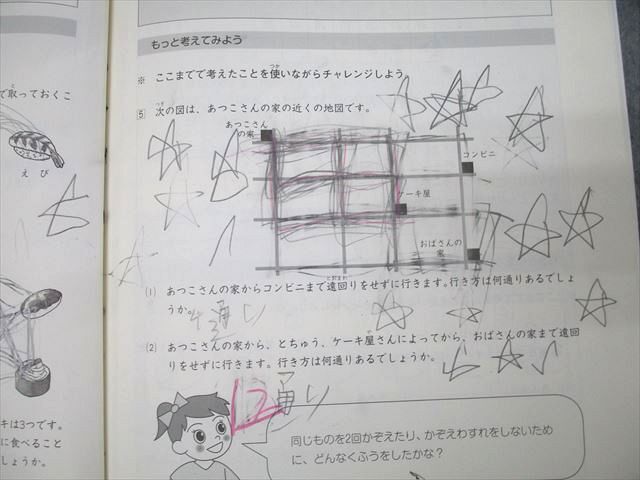 もっと考えてみよう
※ ここまでで考えたことを使いながらチャレンジしよう
5 次の図は、あつこさんの家の近くの地図です。
あつこさんの家
コンビニ
ケーキ屋
おばさんの家
(1) あつこさんの家からコンビニまで遠回りをせずに行きます。行き方は何通りあるでしょ
うか。
通り
(2) あつこさんの家から、とちゅう、ケーキ屋さんによってから、おばさんの家まで遠回
りをせずに行きます。行き方は何通りあるでしょうか。
12通り
同じものを2回かぞえたり、かぞえわすれをしないため
に、どんなくふうをしたかな？
で取っておくこ
えび
キは3つです。
に食べること
しょうか。